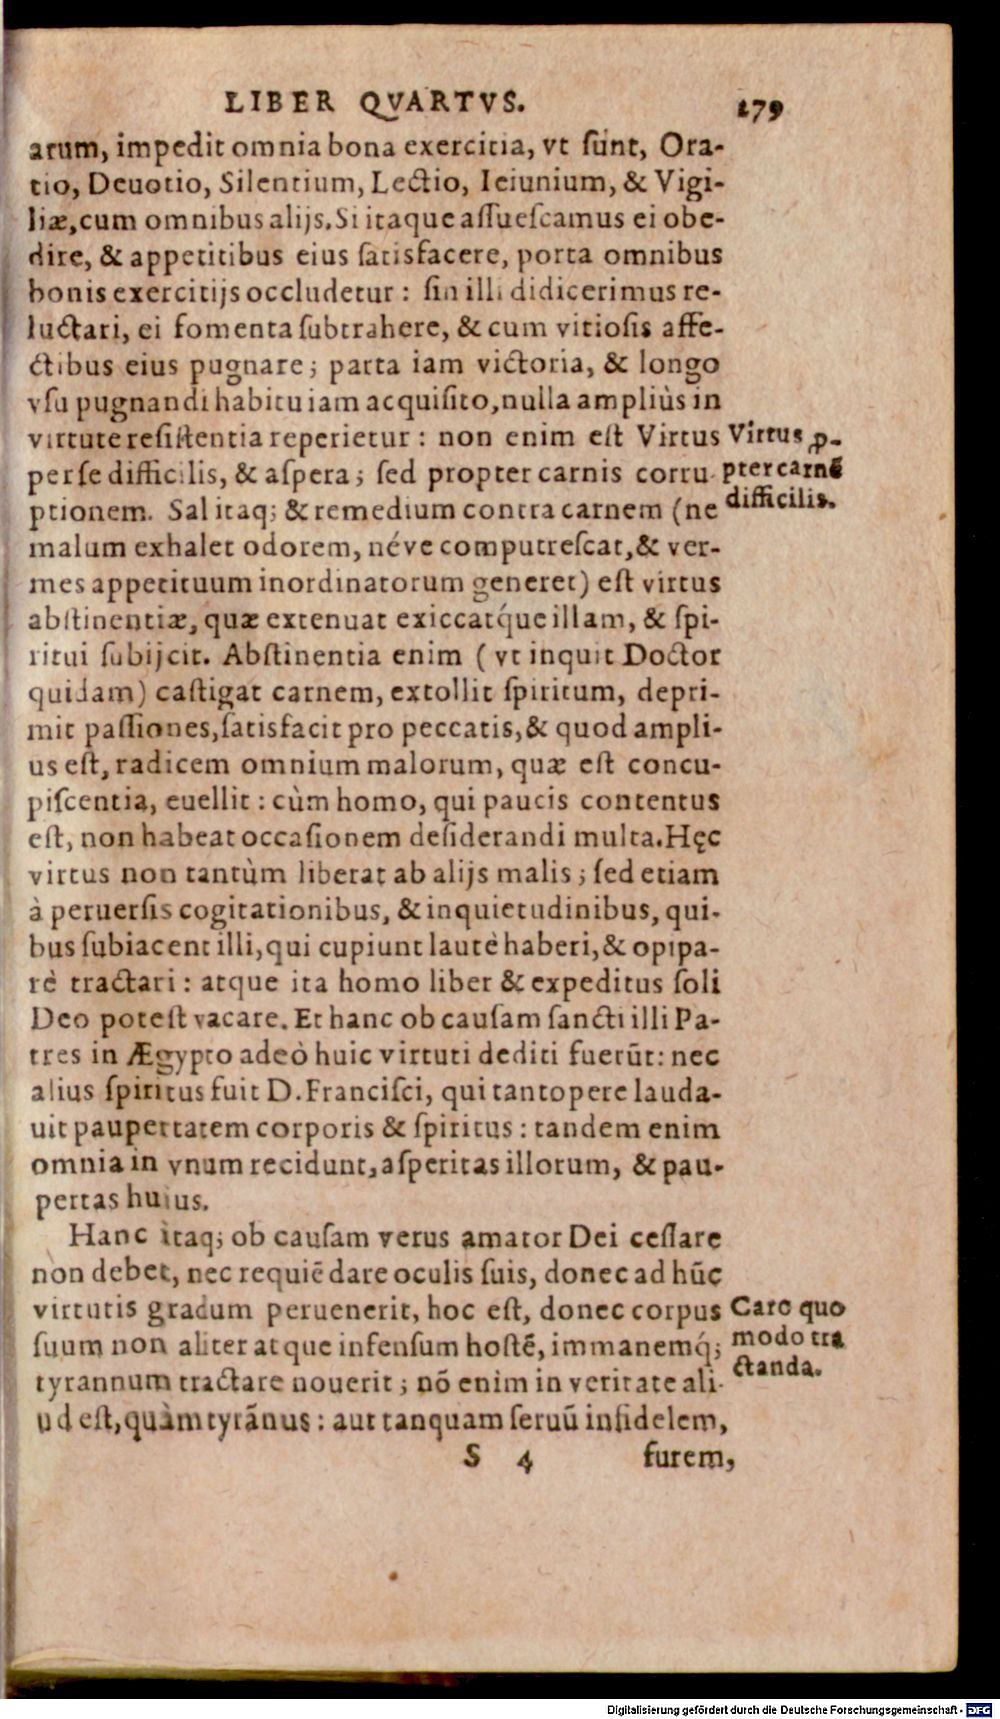 LIBER QVARTVS. 279
arum, impedit omnia bona exercitia, vt sunt, Ora-
tio, Deuotio, Silentium, Lectio, Ieiunium, & Vigi-
liæ, cum omnibus alijs. Si itaque assuescamus ei obe-
dire, & appetitibus eius satisfacere, porta omnibus
bonis exercitijs occludetur: sin illi didicerimus re-
luctari, ei fomenta subtrahere, & cum vitiosis affe-
ctibus eius pugnare; parta iam victoria, & longo
vsu pugnandi habitu iam acquisito, nulla ampliùs in
virtute resistentia reperietur: non enim est Virtus
per se difficilis, & aspera; sed propter carnis corru-
ptionem. Sal itaq; & remedium contra carnem (ne
malum exhalet odorem, néve computrescat, & ver-
mes appetituum inordinatorum generet) est virtus
abstinentiæ, quæ extenuat exiccatq́ue illam, & spi-
ritui subijcit. Abstinentia enim (vt inquit Doctor
quidam) castigat carnem, extollit spiritum, depri-
mit passiones, satisfacit pro peccatis, & quod ampli-
us est, radicem omnium malorum, quæ est concu-
piscentia, euellit: cùm homo, qui paucis contentus
est, non habeat occasionem desiderandi multa. Hęc
virtus non tantùm liberat ab alijs malis; sed etiam
à peruersis cogitationibus, & inquietudinibus, qui-
bus subiacent illi, qui cupiunt lautè haberi, & opipa-
rè tractari: atque ita homo liber & expeditus soli
Deo potest vacare. Et hanc ob causam sancti illi Pa-
tres in Ægypto adeò huic virtuti dediti fuerūt: nec
alius spiritus fuit D. Francisci, qui tantopere lauda-
uit paupertatem corporis & spiritus: tandem enim
omnia in vnum recidunt, asperitas illorum, & pau-
pertas huius.
Hanc itaq; ob causam verus amator Dei cessare
non debet, nec requiē dare oculis suis, donec ad hūc
virtutis gradum peruenerit, hoc est, donec corpus
suum non aliter atque infensum hostē, immanemq́;
tyrannum tractare nouerit; nō enim in veritate ali-
ud est, quàm tyrānus: aut tanquam seruū infidelem,
S 4 furem,
Virtus ꝓ-
pter carnē
difficilis.
Caro quo
modo tra
ctanda.
Digitalisierung gefördert durch die Deutsche Forschungsgemeinschaft - DFG